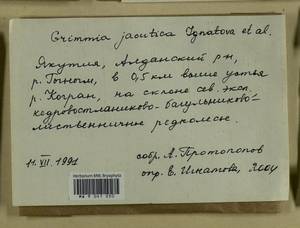 Grimmia jacutica Ignatova et al.
Якутия, Алданский р-н,
р. в 0,5 км выше устья
р. на склоне сев. эксп.
кедровостланиково-багульниково-
лиственничное редколесье.
11.VII.1991
собр. А. Протопопов
опр. Е. Игнатова, 2004
Herbarium MW, Bryophyta